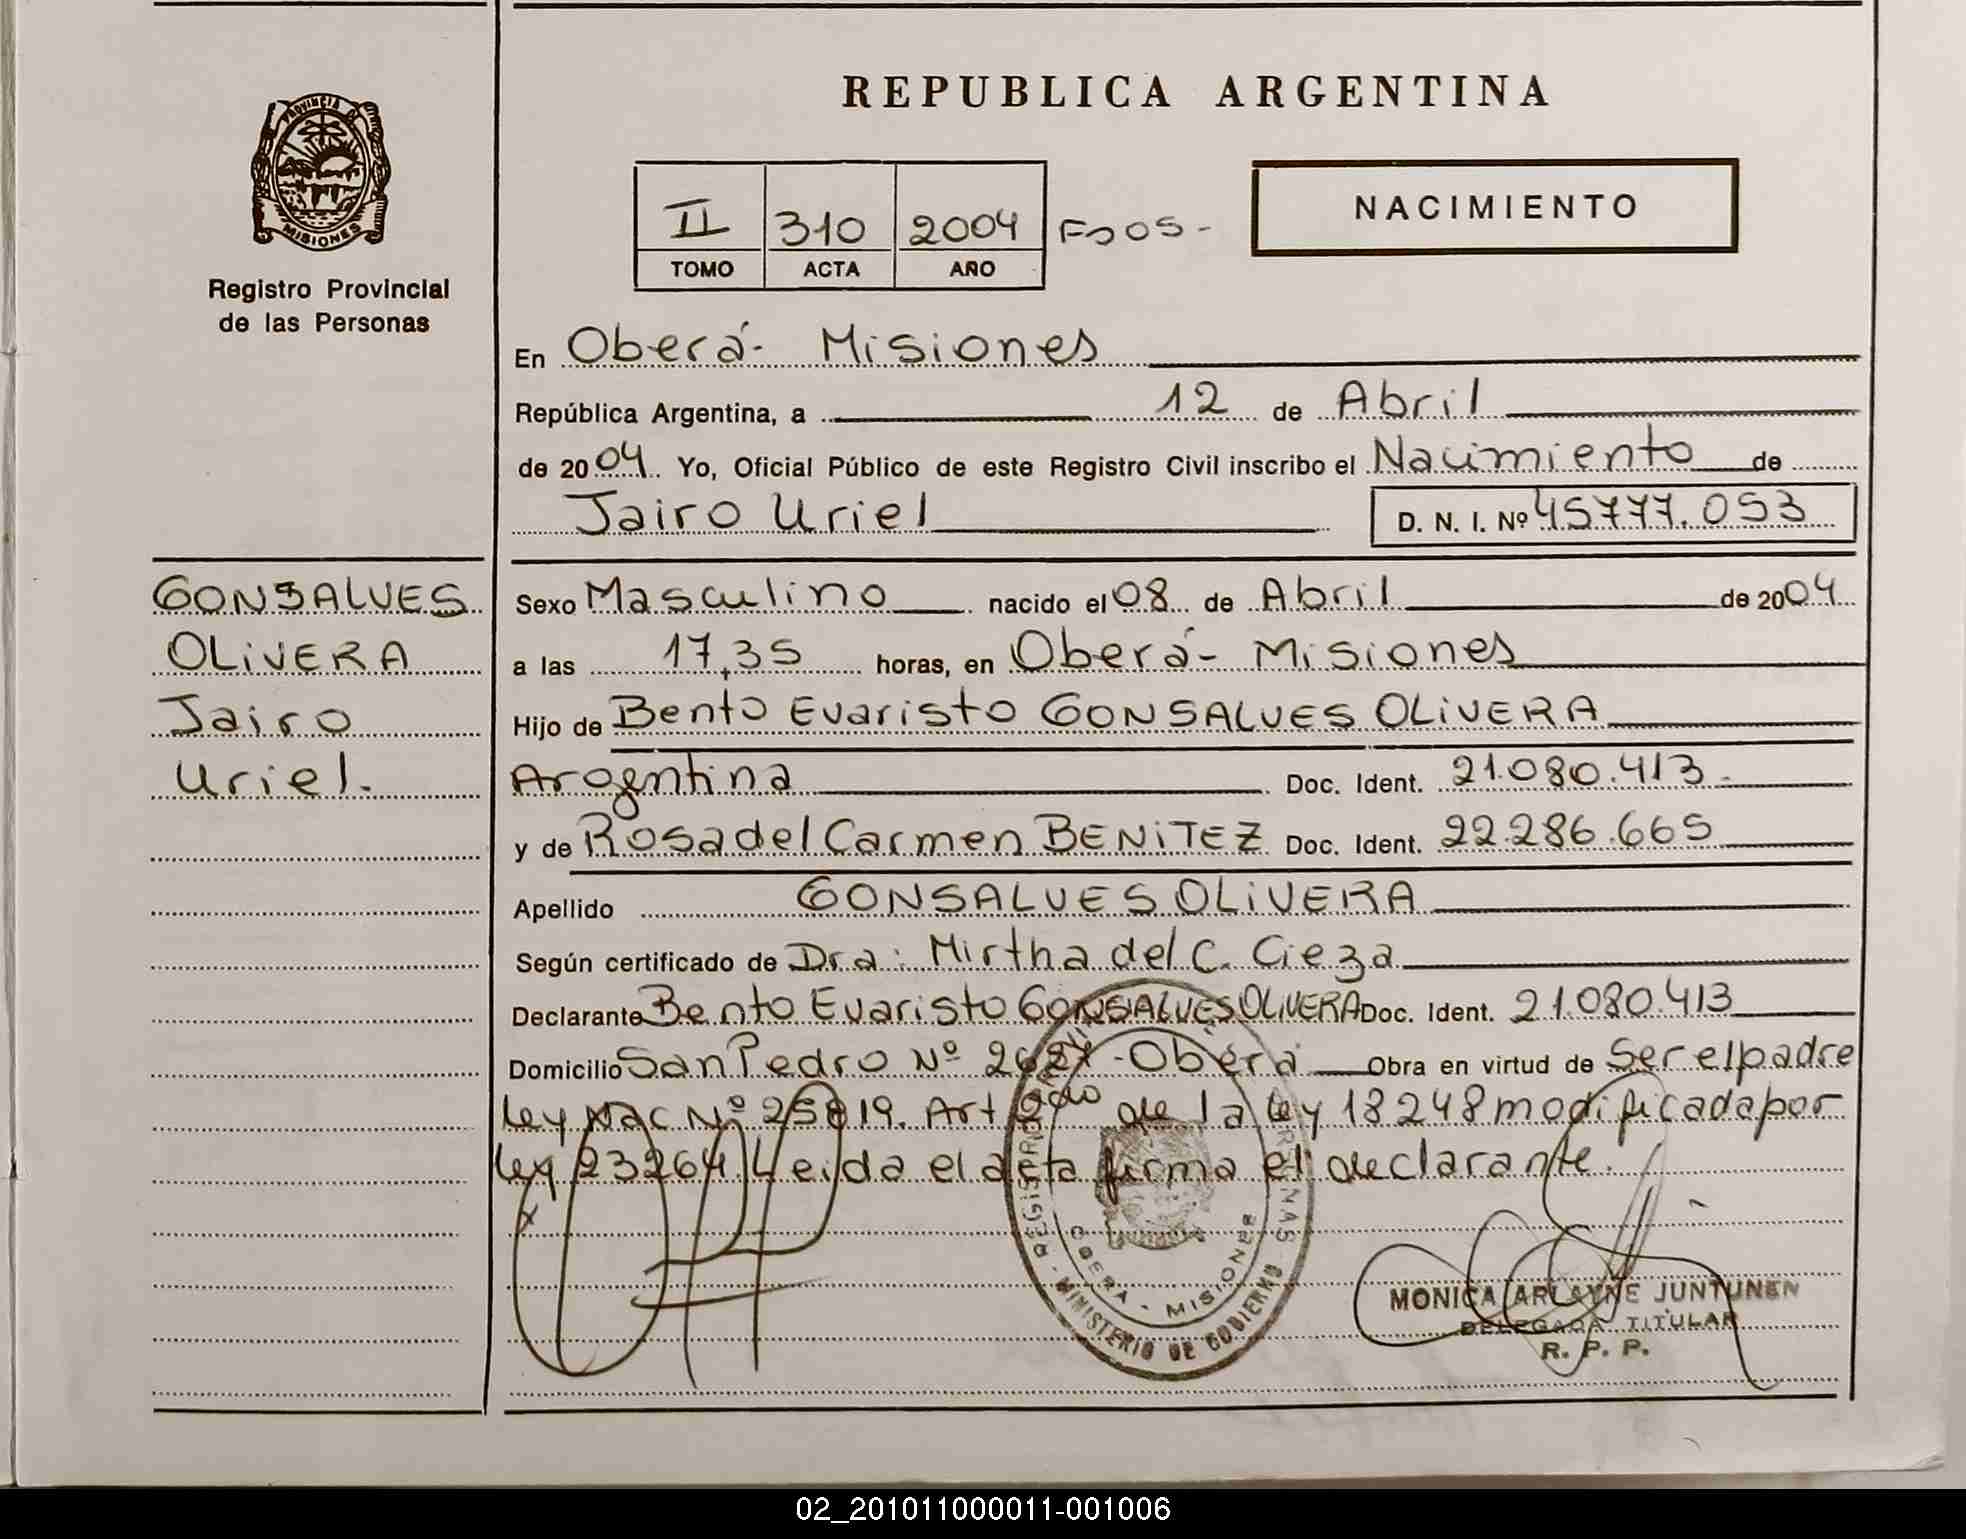 REPUBLICA ARGENTINA
PROVINCIA DE
MISIONES
Registro Provincial
de las Personas
II 310 2004
TOMO ACTA AÑO
NACIMIENTO
En Oberá- Misiones
República Argentina, a 12 de Abril
de 2004. Yo, Oficial Público de este Registro Civil inscribo el Nacimiento de
Jairo Uriel D. N. I. Nº 45777.053
GONSALVES
OLIVERA
Jairo
Uriel.
Sexo Masculino nacido el 08 de Abril de 2004
a las 17,35 horas, en Oberá- Misiones
Hijo de Bento Evaristo GONSALVES OLIVERA
Argentina Doc. Ident. 21.080.413.
y de Rosa del Carmen BENITEZ Doc. Ident. 22.286.665
Apellido GONSALVES OLIVERA
Según certificado de Dra: Mirtha del C. Cieza
Declarante Bento Evaristo GONSALVES OLIVERA Doc. Ident. 21.080.413
Domicilio San Pedro Nº - Oberá Obra en virtud de Ser el padre
Ley Nac Nº 25819. Art 2do de la Ley 18248 modificada por
Ley 23264 Leida el acta firma el declarante.
OBERA - MISIONES
MINISTERIO DE GOBIERNO
MONICA ARLAYNE JUNTUNEN
DELEGADA TITULAR
R. P. P.
02_201011000011-001006